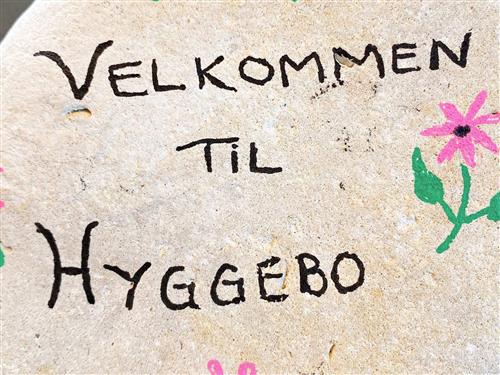 VELKOMMEN
TiL
HYGGEBO